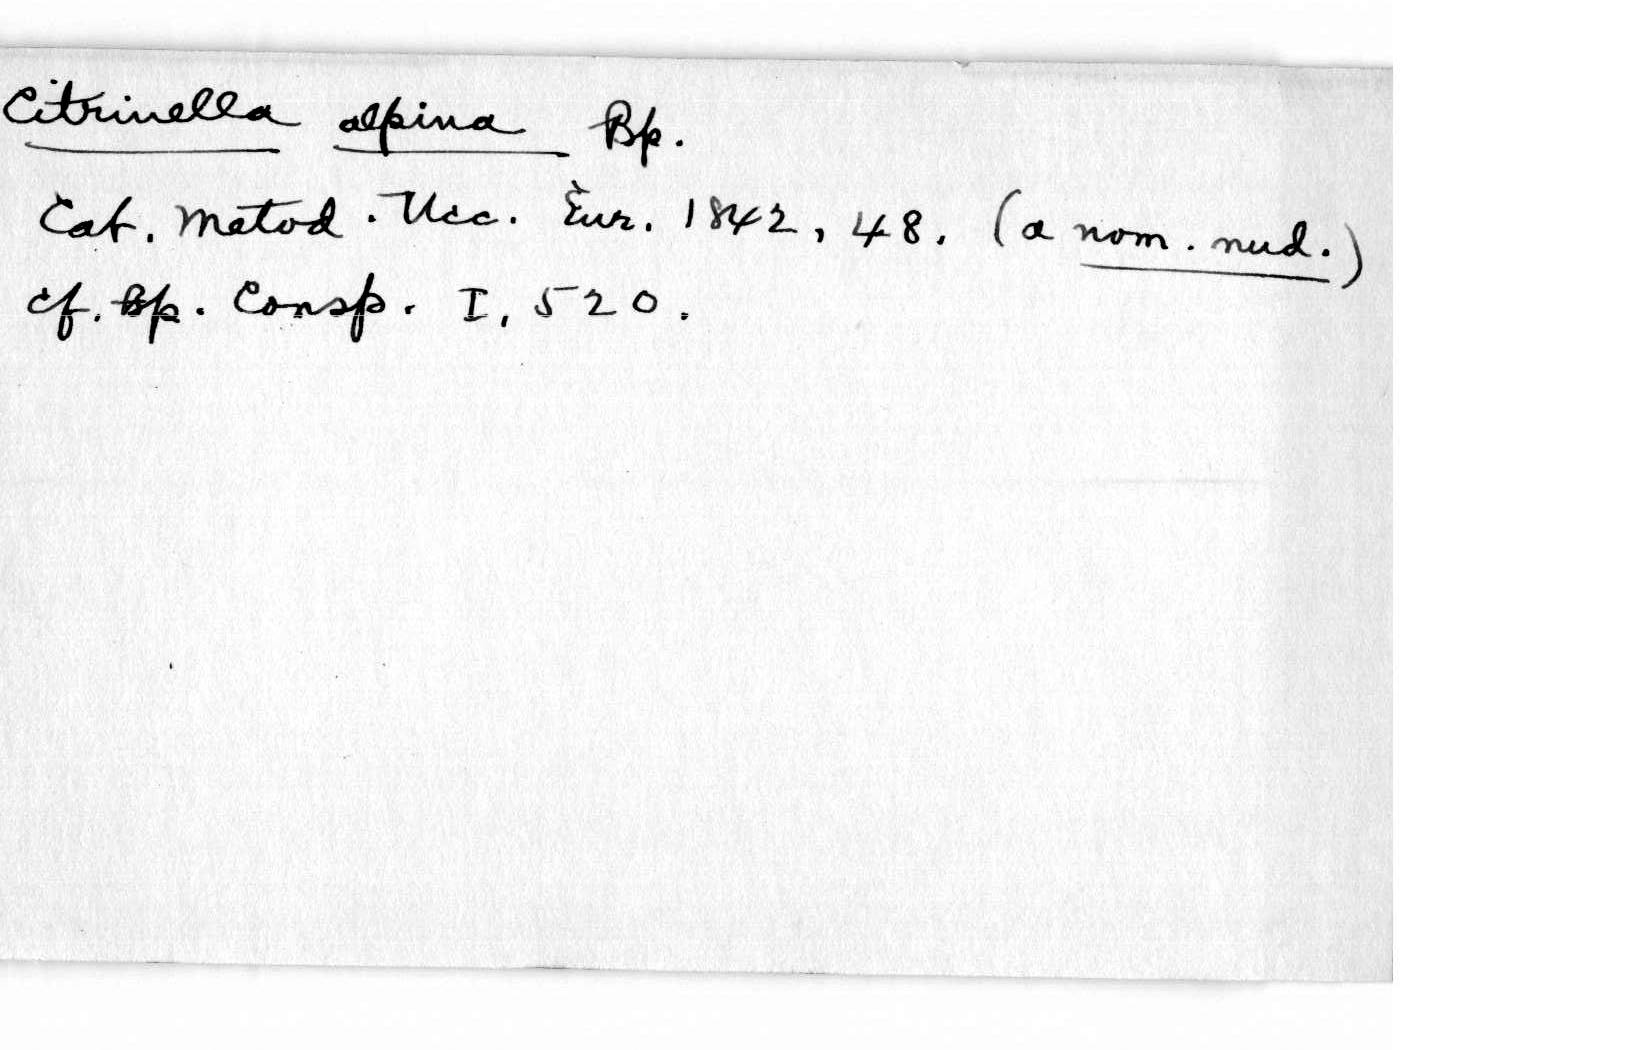 Citrinella alpina Bp.
Cat. Metod. Ucc. Eur. 1842, 48. (a nom. nud.)
cf. Bp. Consp. I, 520.